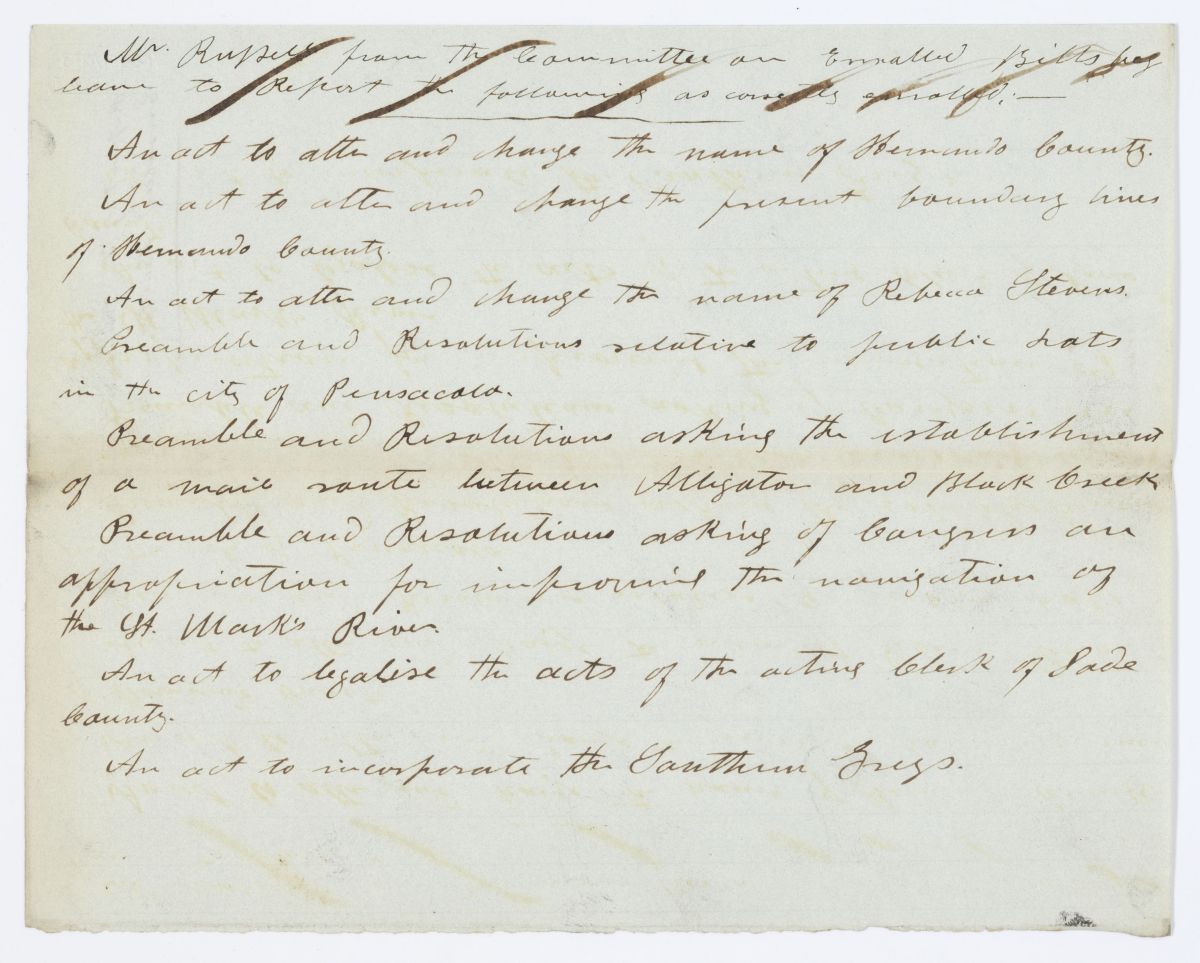 Mr. Russell from the Committee on Enrolled Bills beg
leave to Report the following as correctly enrolled;—
An act to alter and change the name of Hernando County.
An act to alter and change the present boundary lines
of Hernando County.
An act to alter and change the name of Rebecca Stevens.
Preamble and Resolutions relative to public Lots
in the city of Pensacola.
Preamble and Resolutions asking the establishment
of a mail route between Alligator and Black Creek
Preamble and Resolutions asking of Congress an
appropriation for improving the navigation of
the St. Mark's River.
An act to legalise the acts of the acting Clerk of Dade
County.
An act to incorporate the Southern Greys.